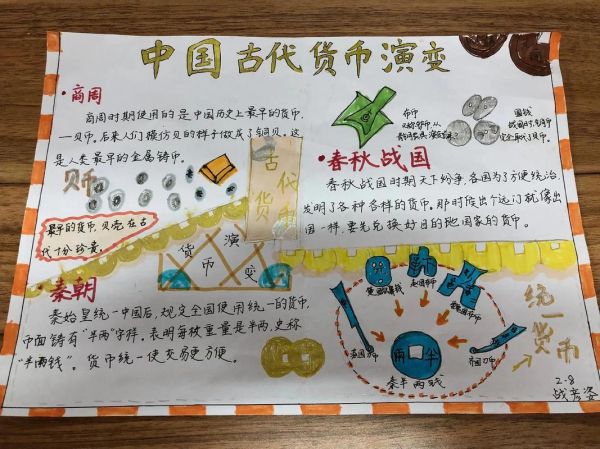 中国古代货币演变
·商周
商周时期使用的是中国历史上最早的货币,
一贝币。后来人们模仿贝的样子做成了铜贝。这
是人类最早的金属铸币。
贝币
最早的货币,贝壳在古
代十分珍贵。
古代货
货币演变
布币
圜钱
·春秋战国
春秋战国时期天下纷争,各国为了方便统治,
发明了各种各样的货币。那时候出个远门就像出
国一样,要先兑换好目的地国家的货币。
·秦朝
秦始皇统一中国后,规定全国使用统一的货币,
币面铸有“半两”字样,表明每枚重量是半两,史称
“半两钱”。货币统一使交易更方便。
半两
秦半两钱
统一货币
2-8
战彦姿